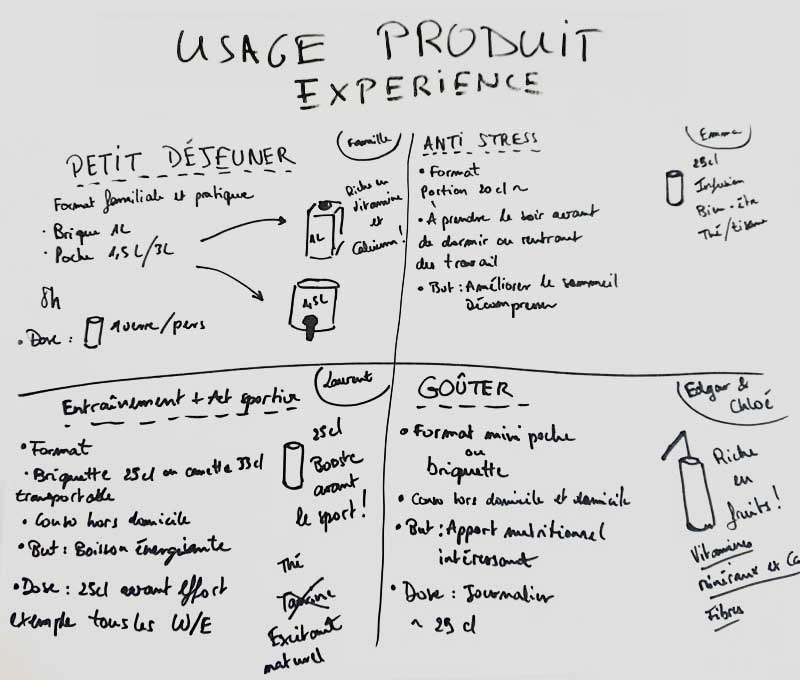 USAGE PRODUIT
EXPERIENCE
PETIT DÉJEUNER
Famille
Format familiale et pratique
• Brique 1L
• Poche 1,5L/3L
Riche en
vitamine
et
Calcium !
1L
1,5L
8h
• Dose : 1 verre/pers
ANTI STRESS
Emma
• Format
Portion 20cl ~
• À prendre le soir avant
de dormir ou rentrant
des travail
• But : Améliorer le sommeil
Décompresser
25cl
Infusion
Bien-être
Thé/tisane
Entraînement + Act sportive
Laurent
• Format
• Briquette 25cl ou canette 33cl
transportable
• Conso hors domicile
• But : Boisson énergisante
• Dose : 25cl avant effort
exemple tous les W/E
25cl
Booste
avant
le sport !
Thé
Taurine
Excitant
naturel
GOÛTER
Edgar &
Chloé
• Format mini poche
ou
briquette
• Conso hors domicile et domicile
• But : Apport nutritionnel
intéressant
• Dose : Journalier
~ 25 cl
Riche
en
fruits !
Vitamines
minéraux et Ca
Fibres